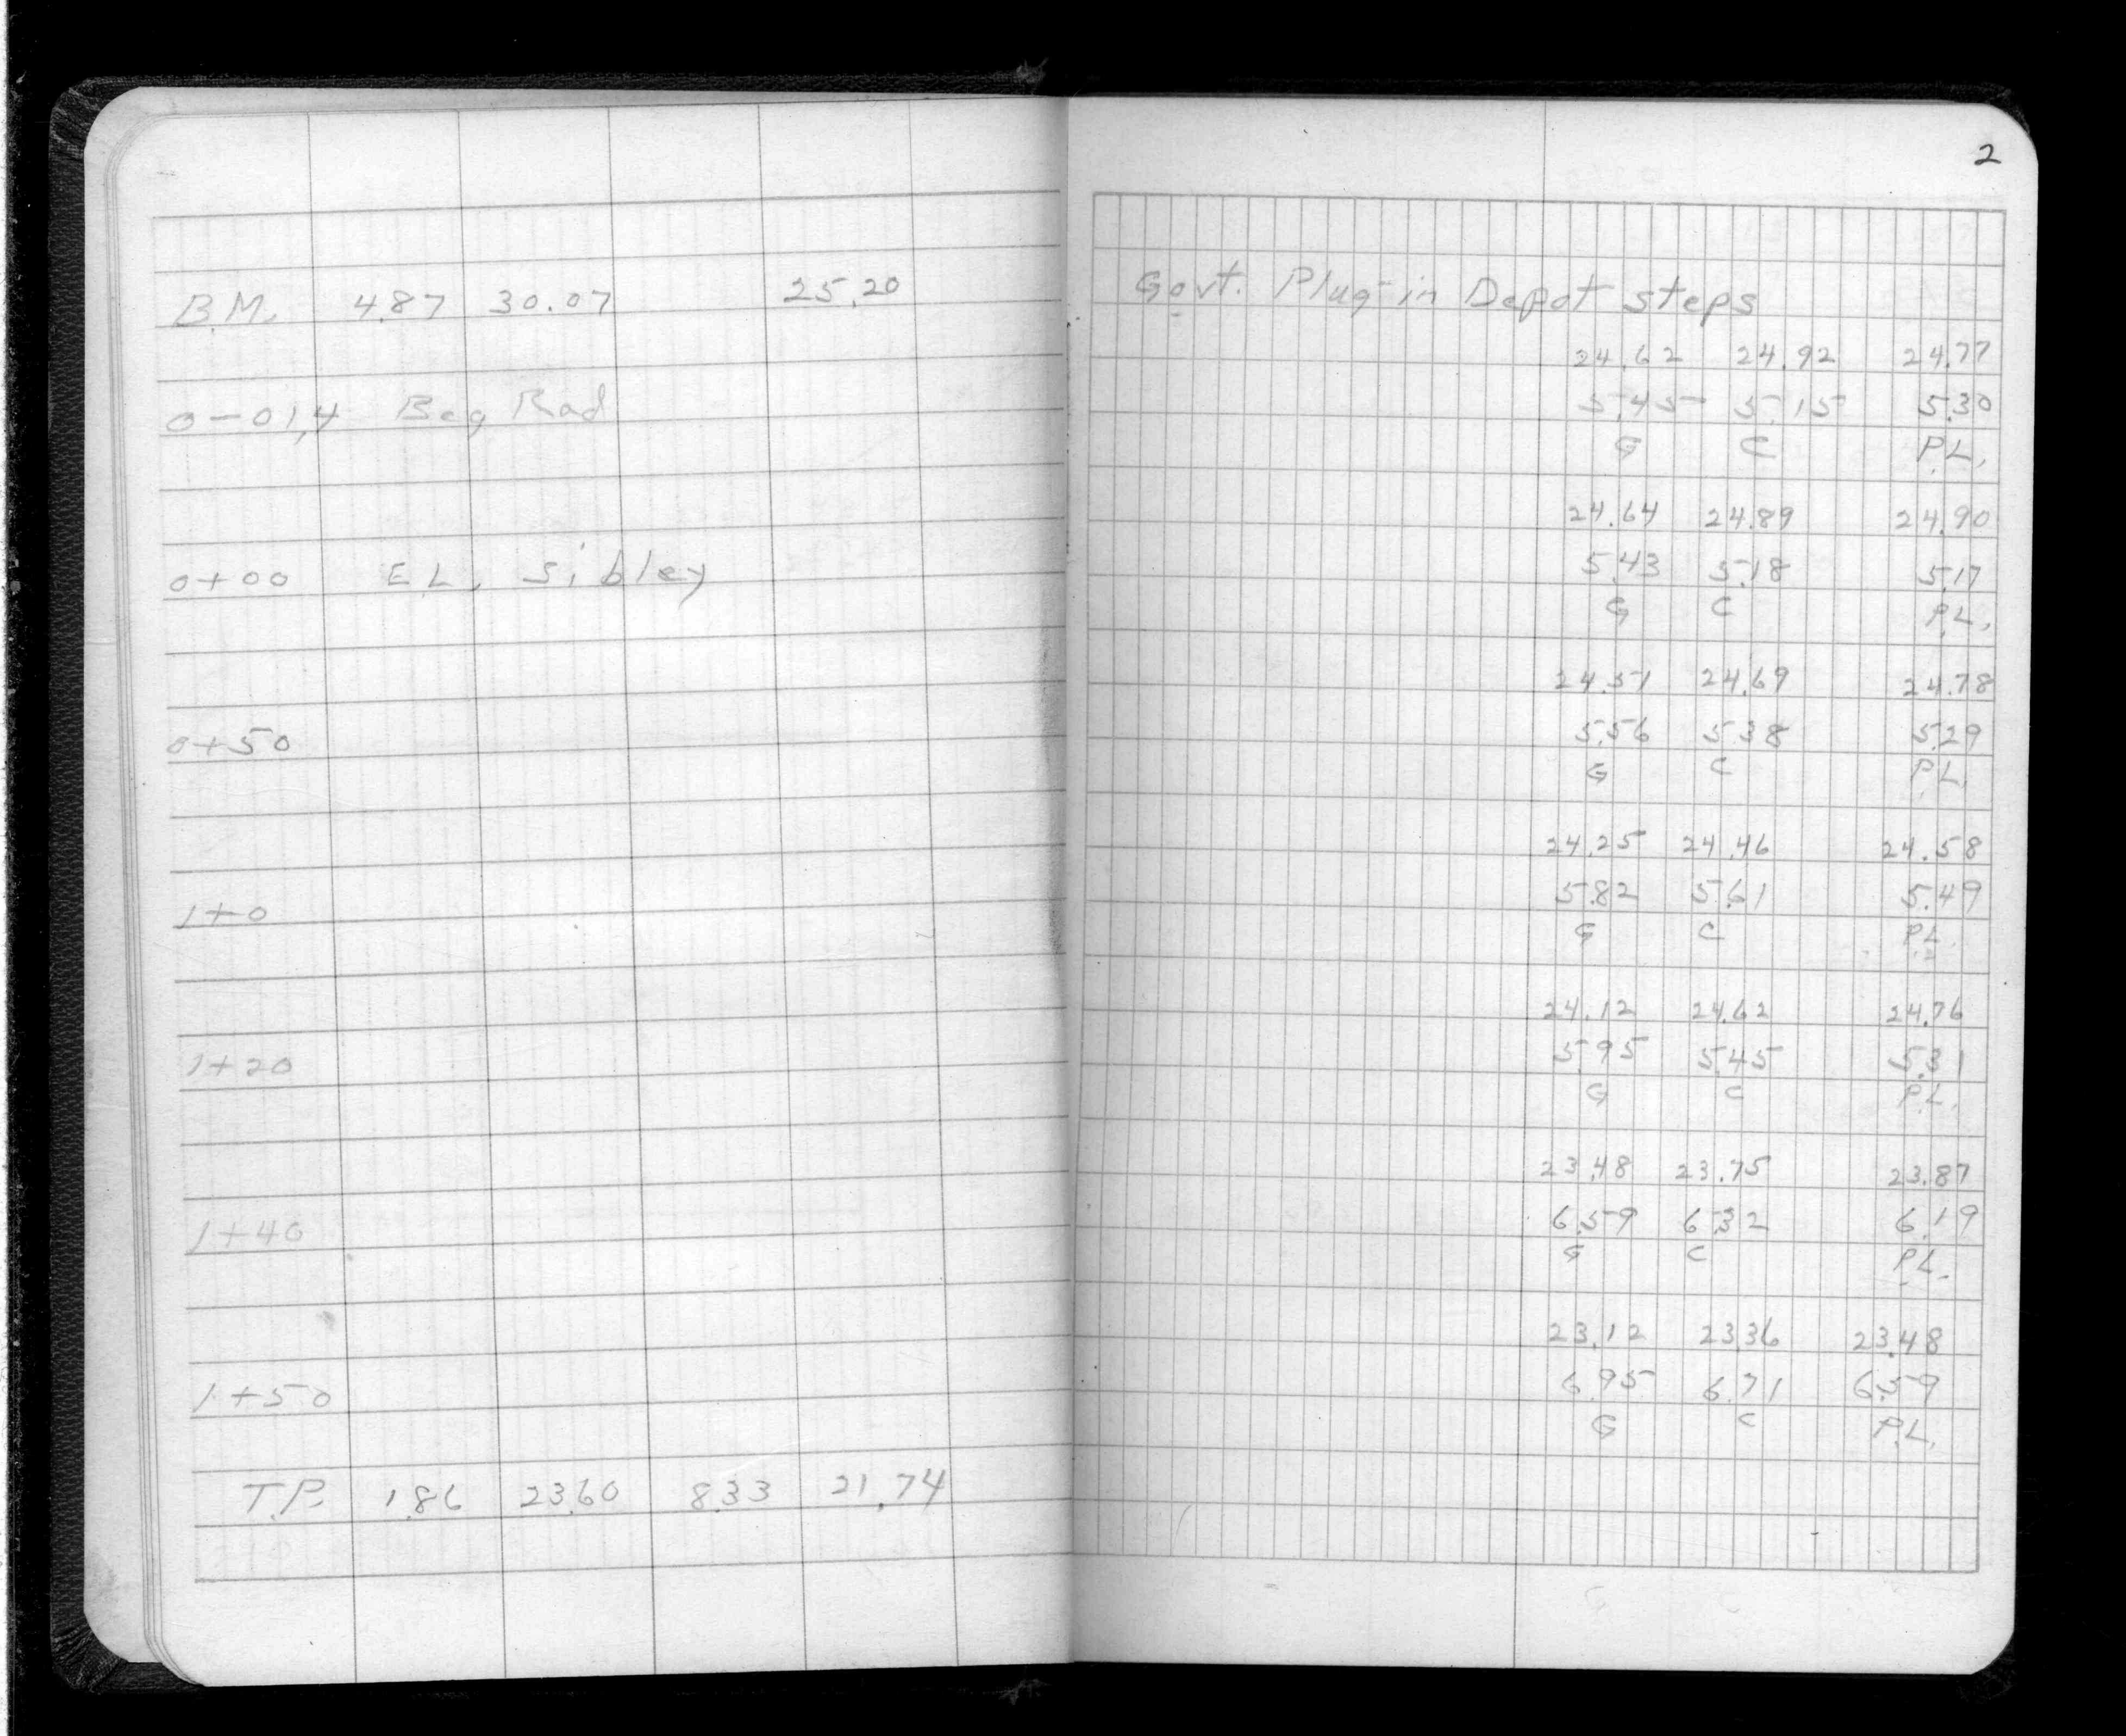 2
B.M. 4.87 30.07 25.20 Govt. Plug in Depot steps
24.62 24.92 24.77
0-01.4 Beg Rad 5.45 5.15 5.30
G C P.L.
24.64 24.89 24.90
0+00 E.L. Sibley 5.43 5.18 5.17
G C P.L.
24.51 24.69 24.78
0+50 5.56 5.38 5.29
G C P.L.
24.25 24.46 24.58
1+0 5.82 5.61 5.49
G C P.L.
24.12 24.62 24.76
1+20 5.95 5.45 5.31
G C P.L.
23.48 23.75 23.87
1+40 6.59 6.32 6.19
G C P.L.
23.12 23.36 23.48
1+50 6.95 6.71 6.59
G C P.L.
T.P. 1.86 23.60 8.33 21.74